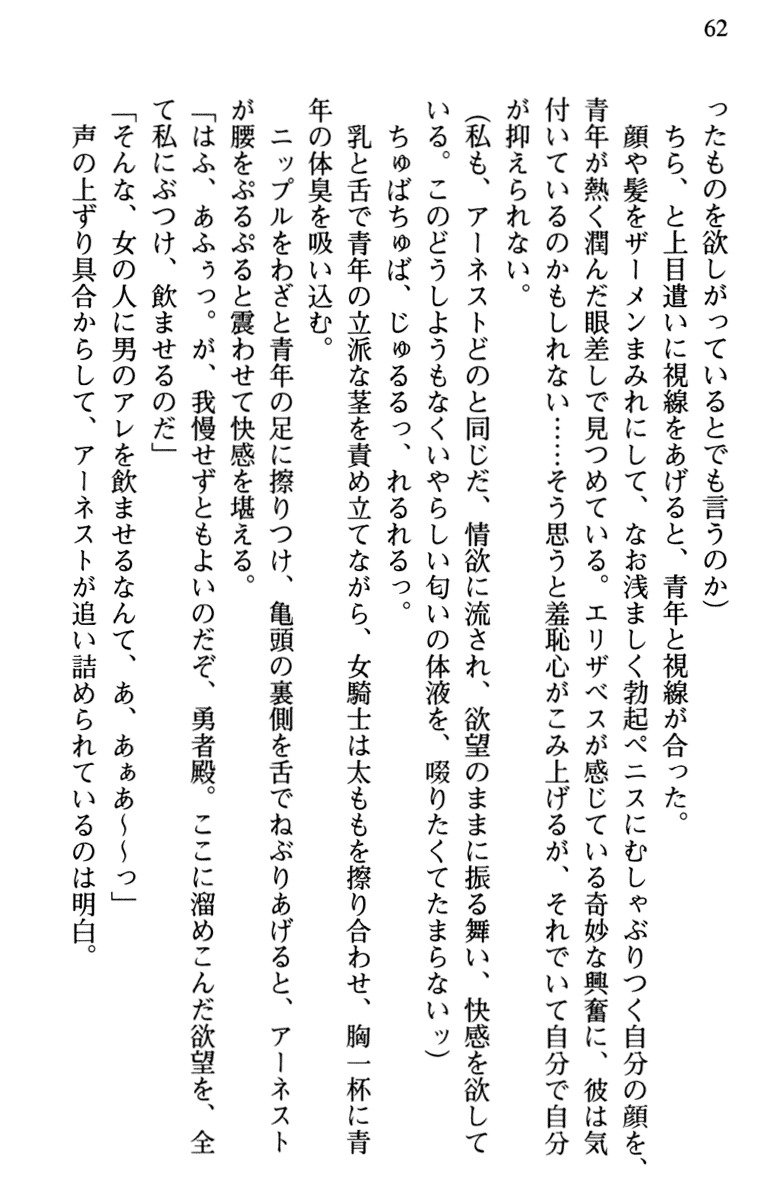 62
ったものを欲しがっているとでも言うのか)
ちら、と上目遣いに視線をあげると、青年と視線が合った。
顔や髪をザーメンまみれにして、なお浅ましく勃起ペニスにむしゃぶりつく自分の顔を、
青年が熱く潤んだ眼差しで見つめている。エリザベスが感じている奇妙な興奮に、彼は気
付いているのかもしれない……そう思うと羞恥心がこみ上げるが、それでいて自分で自分
が抑えられない。
(私も、アーネストどのと同じだ、情欲に流され、欲望のままに振る舞い、快感を欲して
いる。このどうしようもなくいやらしい匂いの体液を、啜りたくてたまらないッ)
ちゅばちゅば、じゅるるっ、れるれるっ。
乳と舌で青年の立派な茎を責め立てながら、女騎士は太ももを擦り合わせ、胸一杯に青
年の体臭を吸い込む。
ニップルをわざと青年の足に擦りつけ、亀頭の裏側を舌でねぶりあげると、アーネスト
が腰をぷるぷると震わせて快感を堪える。
「はふ、あふぅっ。が、我慢せずともよいのだぞ、勇者殿。ここに溜めこんだ欲望を、全
て私にぶつけ、飲ませるのだ」
「そんな、女の人に男のアレを飲ませるなんて、あ、あぁあ～～っ」
声の上ずり具合からして、アーネストが追い詰められているのは明白。